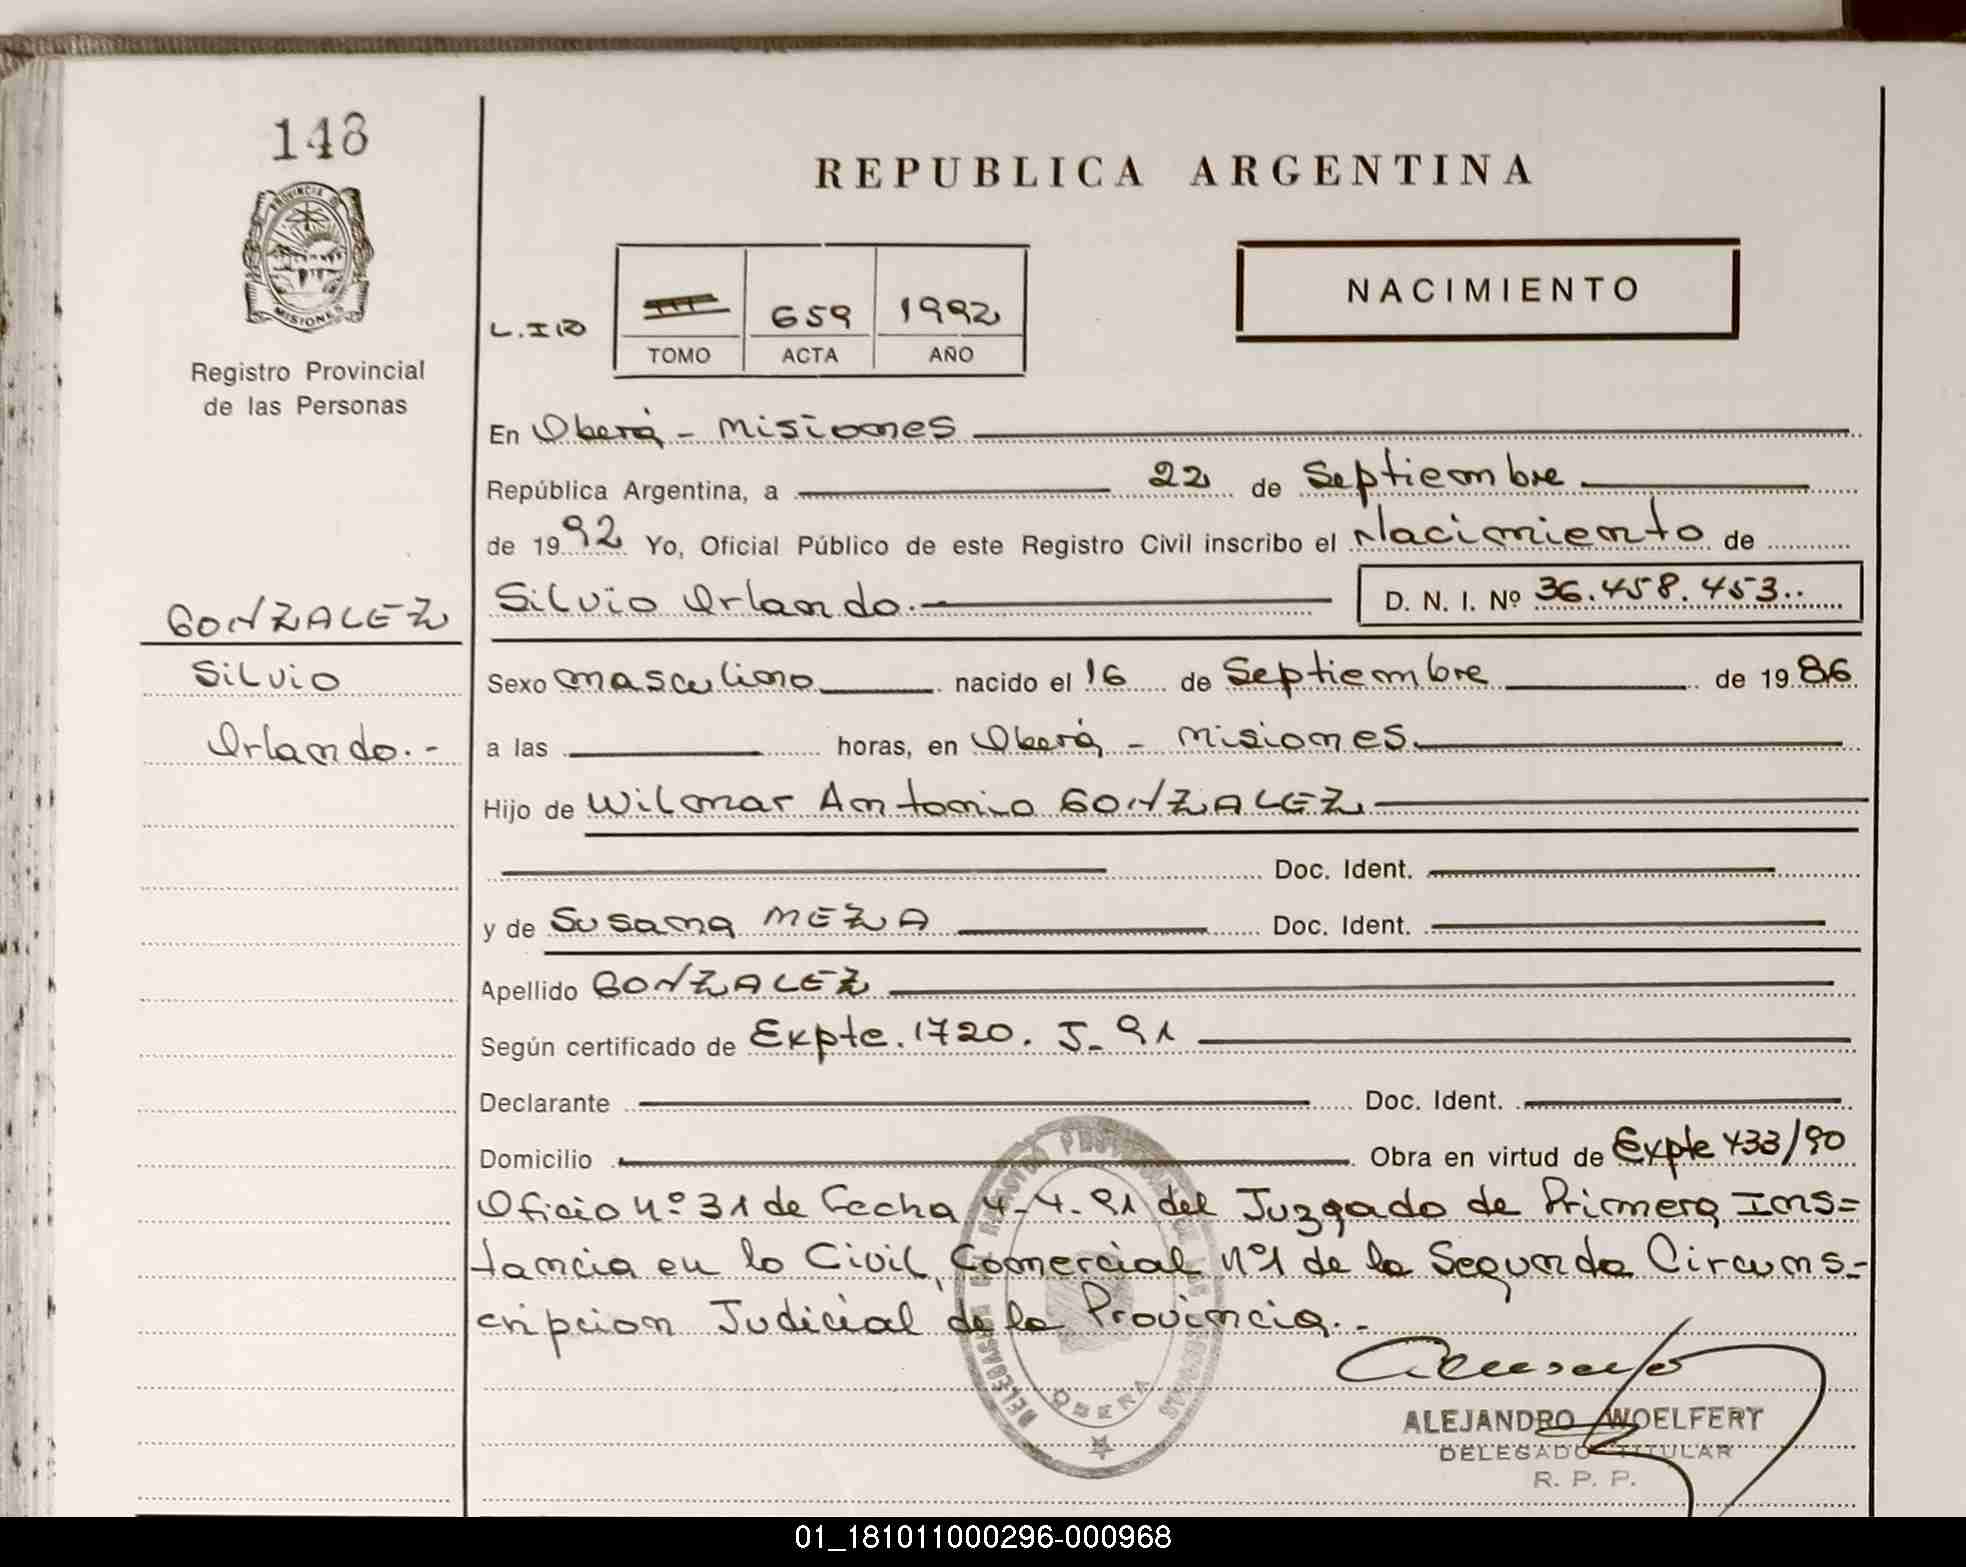 148
PROVINCIA DE
MISIONES
Registro Provincial
de las Personas
REPUBLICA ARGENTINA
NACIMIENTO
659 1992
TOMO ACTA AÑO
En Oberá - Misiones
República Argentina, a 22 de Septiembre
de 1992 Yo, Oficial Público de este Registro Civil inscribo el Nacimiento de
GONZALEZ
Silvio Orlando.- D. N. I. Nº 36.458.453..
Silvio
Sexo masculino nacido el 16 de Septiembre de 1986
Orlando.-
a las horas, en Oberá - Misiones
Hijo de Wilmar Antonio GONZALEZ
Doc. Ident.
y de Susana MEZA Doc. Ident.
Apellido GONZALEZ
Según certificado de Expte. 1720. J_91
Declarante Doc. Ident.
Domicilio Obra en virtud de Expte 433/90
Oficio nº 31 de fecha 4-4-91 del Juzgado de Primera Ins=
tancia en lo Civil, Comercial nº1 de la Segunda Circuns.-
cripcion Judicial de la Provincia..-
OBERA
ALEJANDRO WOELFERT
DELEGADO TITULAR
R. P. P.
01_181011000296-000968